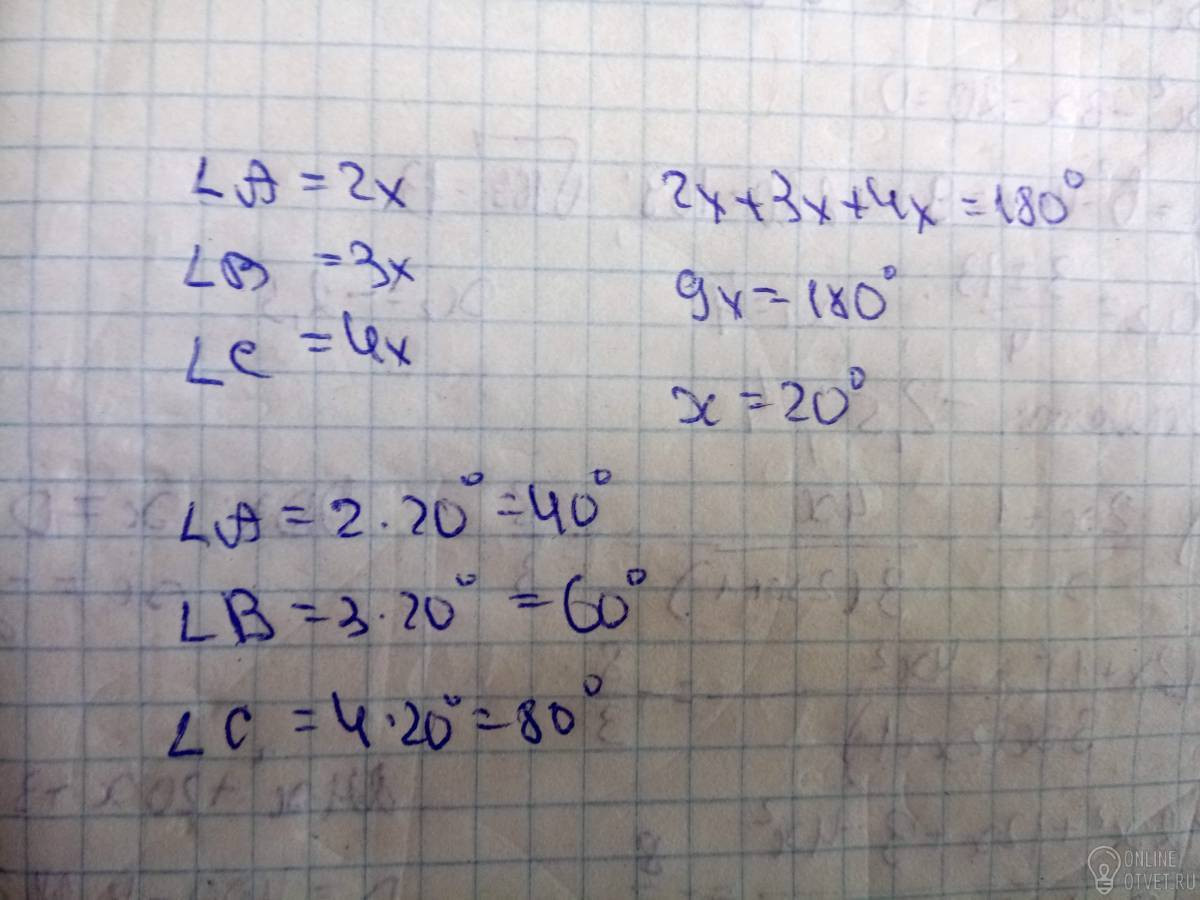 ∠A = 2x
∠B = 3x
∠C = 4x
2x+3x+4x = 180°
9x = 180°
x = 20°
∠A = 2 · 20° = 40°
∠B = 3 · 20° = 60°
∠C = 4 · 20° = 80°
ONLINE
OTVET.RU